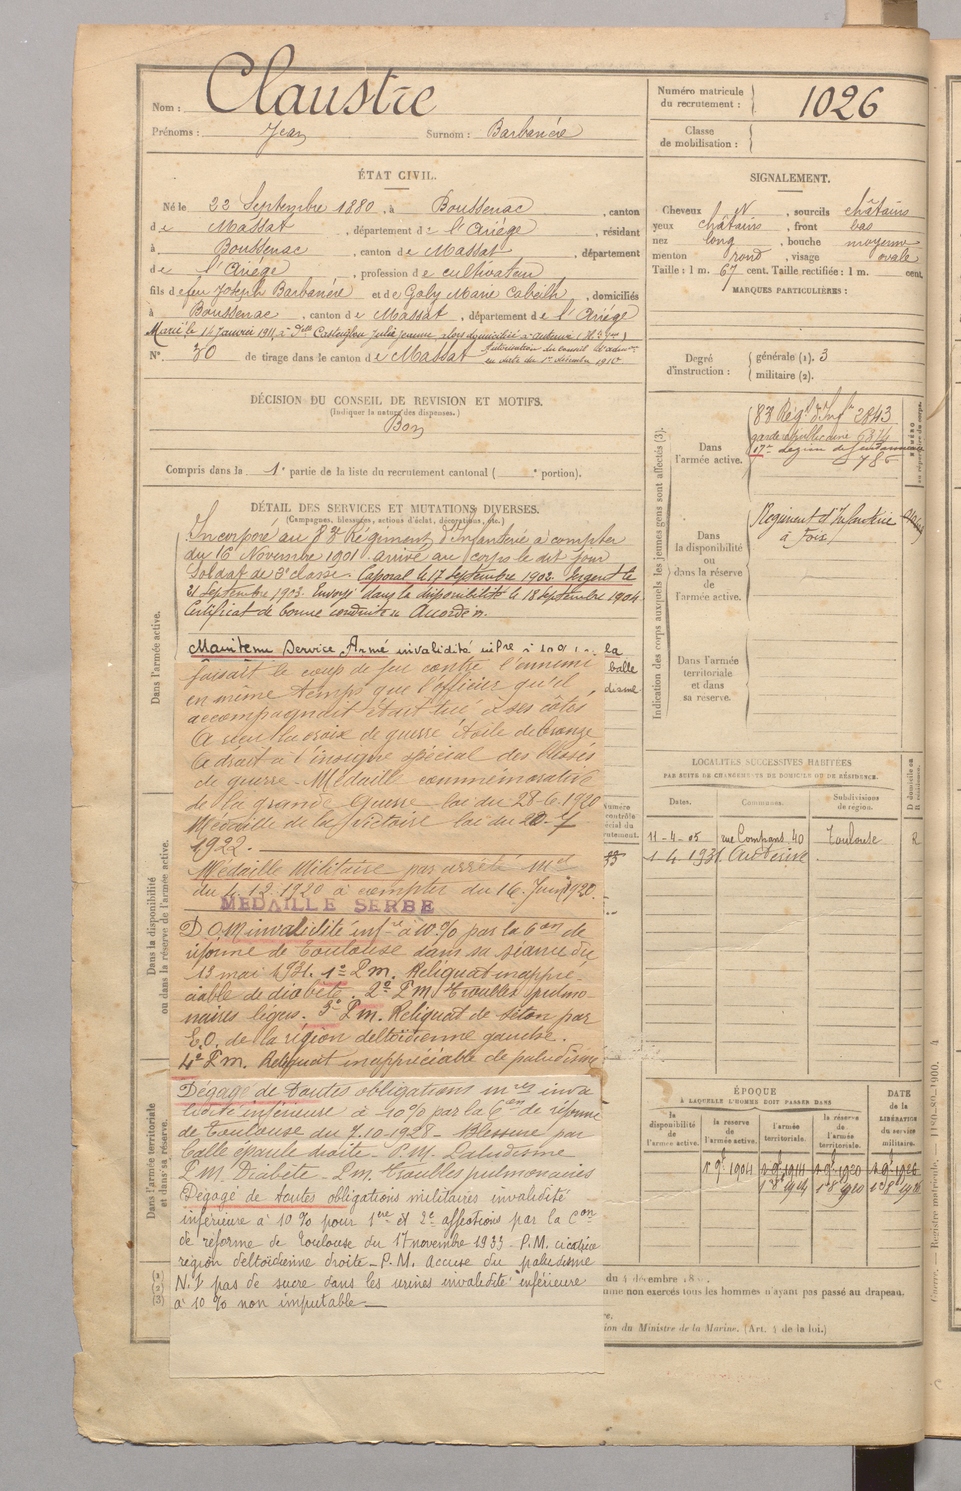 Nom : Claustre
Prénoms : Jean Surnom : Barbanère
Numéro matricule du recrutement : 1026
Classe de mobilisation :
ÉTAT CIVIL.
Né le 22 Septembre 1880, à Boussenac, canton
de Massat, département de l'Ariège, résidant
à Boussenac, canton de Massat, département
de l'Ariège, profession de cultivateur
fils de feu Joseph Barbanère et de Galy Marie Cabeilh, domiciliés
à Boussenac, canton de Massat, département de l'Ariège
Marié le 14 Janvier 1911, à Dlle Julie Jeanne, alors domiciliée à Auterive (Hte Gne)
N° 30 de tirage dans le canton de Massat
autorisation du conseil d'
en date du 1er décembre 1910
DÉCISION DU CONSEIL DE REVISION ET MOTIFS.
(Indiquer la nature des dispenses.)
Bon
Compris dans la 1e partie de la liste du recrutement cantonal ( e portion).
DÉTAIL DES SERVICES ET MUTATIONS DIVERSES.
(Campagnes, blessures, actions d'éclat, décorations, etc.)
Incorporé au 83e Régiment d'Infanterie à compter
du 16 Novembre 1901. arrivé au corps le dit jour
Soldat de 2e classe. Caporal le 17 Septembre 1902. Sergent le
21 Septembre 1903. Envoyé dans la disponibilité le 18 Septembre 1904
Certificat de bonne conduite Accordé.
Maintenu Service Armé invalidité infre à 10% la
balle
faisait le coup de feu contre l'ennemi
en même temps que l'officier qu'il
accompagnait était tué à ses côtés
A reçu la croix de guerre étoile de bronze
A droit à l'insigne spécial des blessés
de guerre - Médaille commémorative
de la grande Guerre loi du 28-6-1920
Médaille de la Victoire loi du 20-7
1922.
Médaille Militaire par arrêté Mel
du 4.12.1920 à compter du 16 Juin 1920.
MEDAILLE SERBE
D.O.M invalidité infre à 10% par la Con de
réforme de Toulouse dans sa séance du
13 mai 1931. 1° P.m. Reliquat inappré-
ciable de diabète. 2° P.m. troubles pulmo-
naires légers. 3° P.m. Reliquat de séton par
E.O. de la région deltoïdienne gauche.
4° P.m. Reliquat inappréciable de paludisme
Dégagé de toutes obligations mres inva
lidité inférieure à 10% par la Con de réforme
de Toulouse du 7.10-1928 - Blessure par
balle épaule droite - P.M. Paludisme
P.M. Diabète - P.M. troubles pulmonaires
Dégagé de toutes obligations militaires invalidité
inférieure à 10% pour 1ere et 2e affections par la Con
de réforme de Toulouse du 17 novembre 1933 - P.M. cicatrice
région deltoïdienne droite - P.M. accuse du paludisme
N.I pas de sucre dans les urines invalidité inférieure
à 10% non imputable
Dans l'armée active.
Dans la disponibilité ou dans la réserve de l'armée active.
Dans l'armée territoriale et dans sa réserve.
(1)
(2)
(3)
SIGNALEMENT.
Cheveux N, sourcils châtains
yeux châtains, front bas
nez long, bouche moyenne
menton rond, visage ovale
Taille : 1 m. 67 cent. Taille rectifiée : 1 m. cent.
MARQUES PARTICULIÈRES :
Degré d'instruction : générale (1). 3
militaire (2).
Indication des corps auxquels les jeunes gens sont affectés (3).
Dans l'armée active.
83 Régt d'Inft 2843
garde républicaine
17e légion de Gendarmerie
785
Dans la disponibilité ou dans la réserve de l'armée active.
Régiment d'Infanterie
à Foix
Dans l'armée territoriale et dans sa réserve.
LOCALITÉS SUCCESSIVES HABITÉES
PAR SUITE DE CHANGEMENTS DE DOMICILE OU DE RÉSIDENCE.
Dates. Communes. Subdivisions de région. D domicile ou R résidence.
11-4-05 rue Compans 40 Toulouse R
1 4 1931 Auterive
ÉPOQUE
À LAQUELLE L'HOMME DOIT PASSER DANS
la disponibilité de l'armée active.
la réserve de l'armée active.
l'armée territoriale.
la réserve de l'armée territoriale.
DATE de la LIBÉRATION du service militaire.
1 9bre 1904 1 9bre 1914 1 9bre 1920 1 9bre 1926
du 4 décembre 18
non exercés tous les hommes n'ayant pas passé au drapeau.
du Ministre de la Marine. (Art. 4 de la loi.)